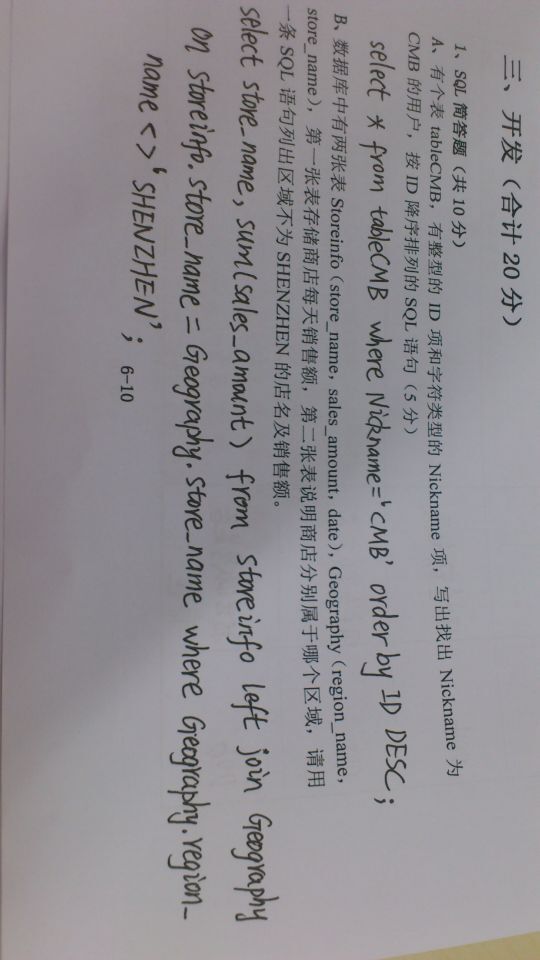 三、开发（合计 20 分）
1、SQL 简答题（共 10 分）
A、有个表 tableCMB，有整型的 ID 项和字符类型的 Nickname 项，写出找出 Nickname 为
CMB 的用户，按 ID 降序排列的 SQL 语句（5 分）
select * from tableCMB where Nickname='CMB' order by ID DESC;
B、数据库中有两张表 Storeinfo（store_name, sales_amount, date），Geography（region_name,
store_name），第一张表存储商店每天销售额，第二张表说明商店分别属于哪个区域，请用
一条 SQL 语句列出区域不为 SHENZHEN 的店名及销售额。
select store_name, sum(sales_amount) from storeinfo left join Geography
on storeinfo.store_name = Geography.store_name where Geography.region_
name <> 'SHENZHEN';
6-10